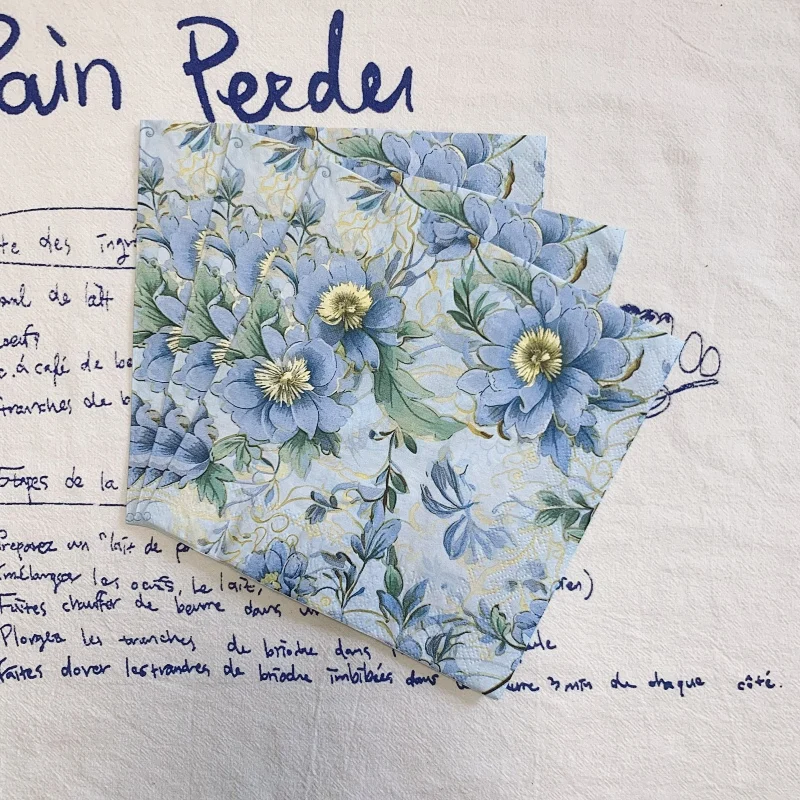 Pain Perdu
te des ingr
ml de lait
oeufs
c. à café de
tranches de b
Etapes de la
Preparez un "lait de p
mélanger les oeufs, le lait,
Faites chauffer de beurre dans un
Plongez les tranches de brioche dans
Faites dorer les tranches de brioche imbibées dans urre 3 min de chaque côté.